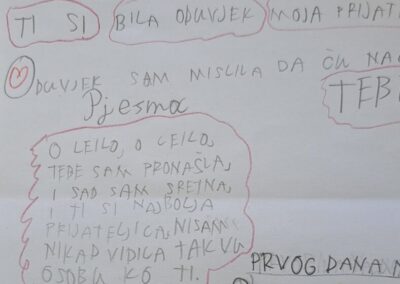 TI SI BILA ODUVJEK MOJA PRIJAT
ODUVJEK SAM MISLILA DA ĆU NA
TEB
Pjesma
O LEILO, O LEILO,
TEBE SAM PRONAŠLA,
I SAD SAM SRETNA,
I TI SI NAJBOLJA
PRIJATELJICA, NISAM
NIKAD VIDILA TAKVU
OSOBU KO TI.
PRVOG DANA